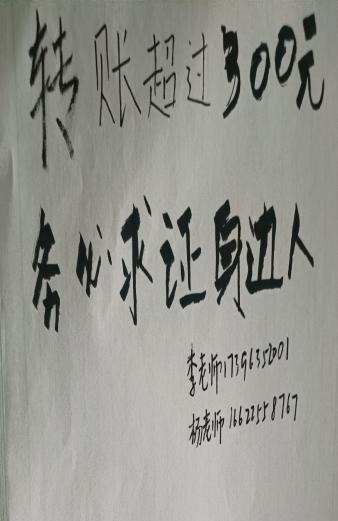 转账超过300元
务必求证身边人
李老师17396352001
杨老师16622558767